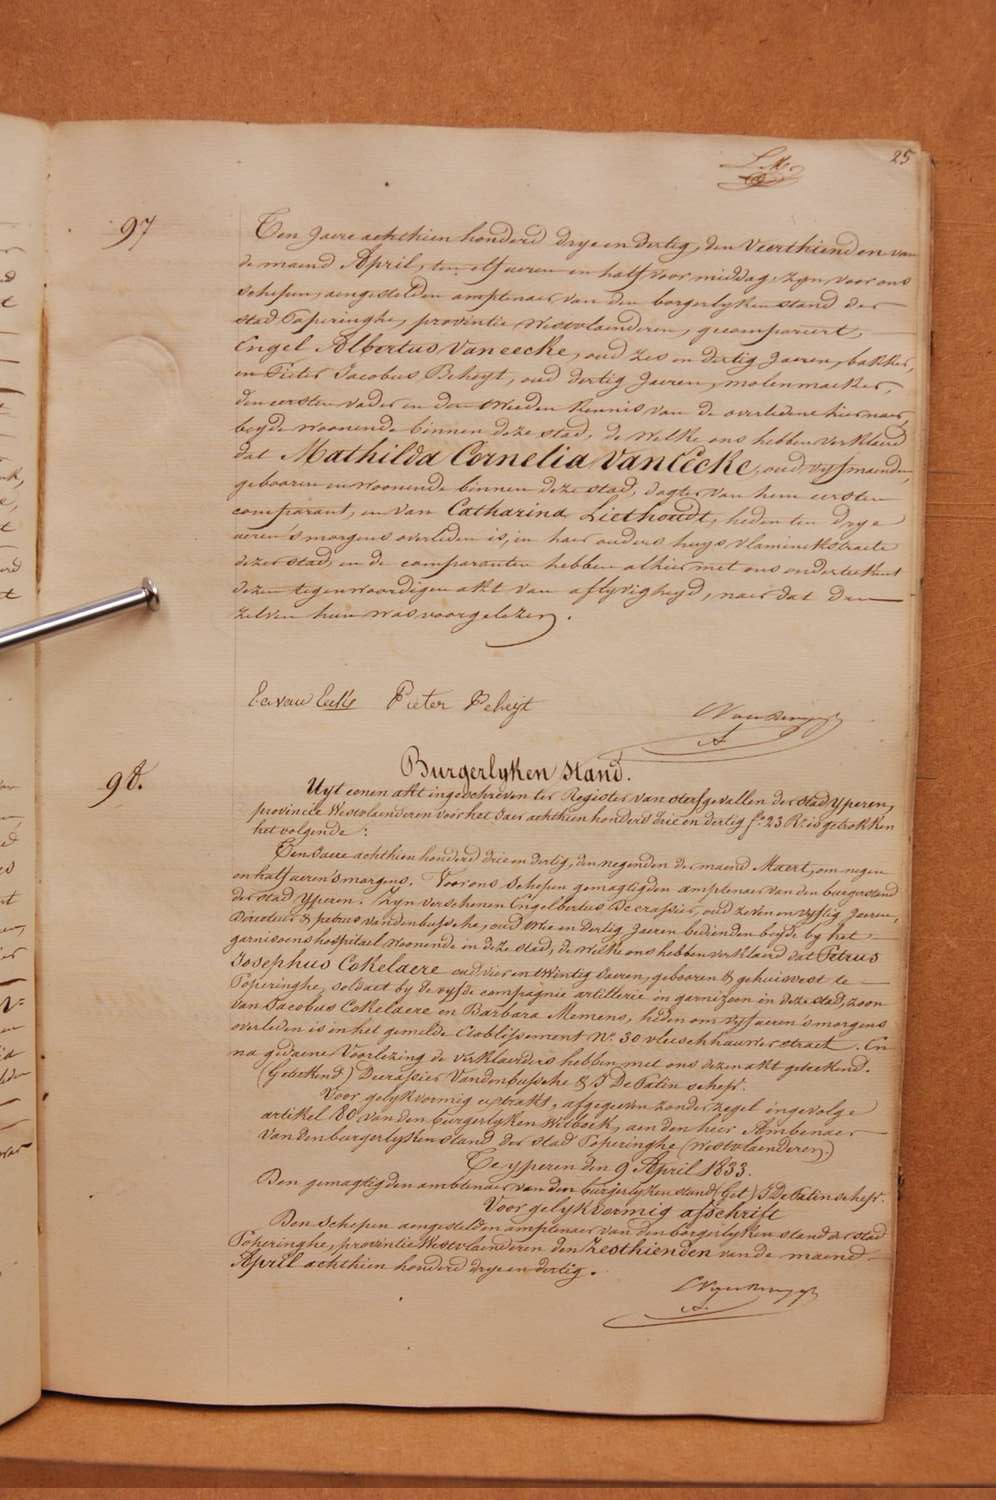 25
97
Ten Jaere achthien honderd drye en dertig, den Veerthienden van
de maend April, ten elf ueren en half voor middag zyn voor ons
Schepen, aengestelden amptenaer van den borgerlyken stand der
stad Poperinghe, provintie Westvlaenderen, gecompareert,
Engel Albertus Vaneecke, oud zes en dertig Jaeren, bakker,
en Pieter Jacobus Beheyt, oud dertig Jaeren, molenmaeker,
den eersten vader en den tweeden kennis van de overledene hiernaer,
beyde woonende binnen deze stad, de welke ons hebben verklaerd
dat Mathilda Cornelia VanEecke, oud vyf maenden,
gebooren en woonende binnen deze stad, dogter van hem eersten
comparant, en van Catharina Liethoudt, heden ten drye
ueren 's morgens overleden is, in haer ouders huys, vlaminckstraete
dezer stad, en de comparanten hebben alhier met ons onderteekent
dezen tegenwoordigen akt van aflyvigheyd, naer dat den
zelven hun was voorgelezen.
Ea van Eecke Pieter Beheyt
98.
Burgerlyken Stand.
Uyt eenen akt ingeschreven ter Register van sterfgevallen der stad Yperen,
provincie Westvlaenderen voor het Jaer achthien honderd drie en dertig f° 23 R° is getrokken
het volgende :
Ten Jaere achthien honderd drie en dertig, den negenden der maend Maert, om negen
en half ueren 's morgens. Voor ons Schepen gemagtigden amptenaer van den burgerstand
der stad Yperen. Zyn verschenen Engelbertus Decrassier, oud zeven en vyftig Jaeren,
Directeur & petrus vandenbussche, oud twee en dertig Jaeren bedienden beyde by het
garnisoens hospitael woonende in deze stad, de welke ons hebben verklaerd dat Petrus
Josephus Cokelaere oud vier en twintig Jaeren, gebooren & gehuisvest te
Poperinghe, soldaet by de vyfde compagnie artillerie in garnizoen in deze stad, zoon
van Jacobus Cokelaere en Barbara Memens, heden om vyf ueren 's morgens
overleden is in het gemelde Etablissement N° 30 vleeschhauwer straet. En
na gedaene Voorlezing de verklaerders hebben met ons dezen akt geteekend.
(Geteekend) Decrassier Vandenbussche & J De Patin schepr.
Voor gelykvormig extrakt, afgegeven zonder zegel ingevolge
artikel 80 van den burgerlyken Wetboek, aen den heer Ambtenaer
van den burgerlyken stand der stad Poperinghe (Westvlaenderen).
Te yperen den 9 April 1833.
Den gemagtigden ambtenaer van den burgerlyken stand (Get) J De Patin schepr.
Voor gelykvormig afschrift
Den Schepen aengestelden amptenaer van den borgerlyken stand der stad
Poperinghe, provintie Westvlaenderen den Zesthienden van de maend
April achthien honderd drye en dertig.